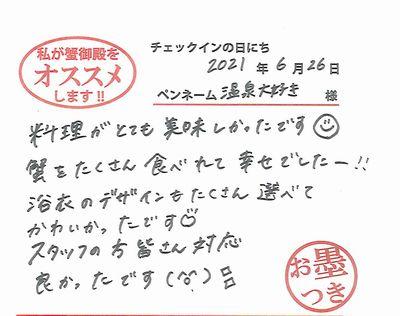 私が蟹御殿を
オススメ
します!!
チェックインの日にち
2021 年 6 月 26 日
ペンネーム 温泉大好き 様
料理がとても美味しかったです
蟹をたくさん食べれて幸せでしたー!!
浴衣のデザインもたくさん選べて
かわいかったです
スタッフの方皆さん対応
良かったです(^^)
お墨
つき